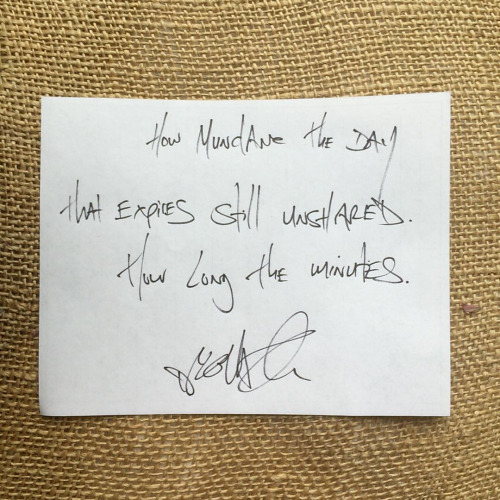 How Mundane the Day
that Expires Still unshared.
How Long the minutes.